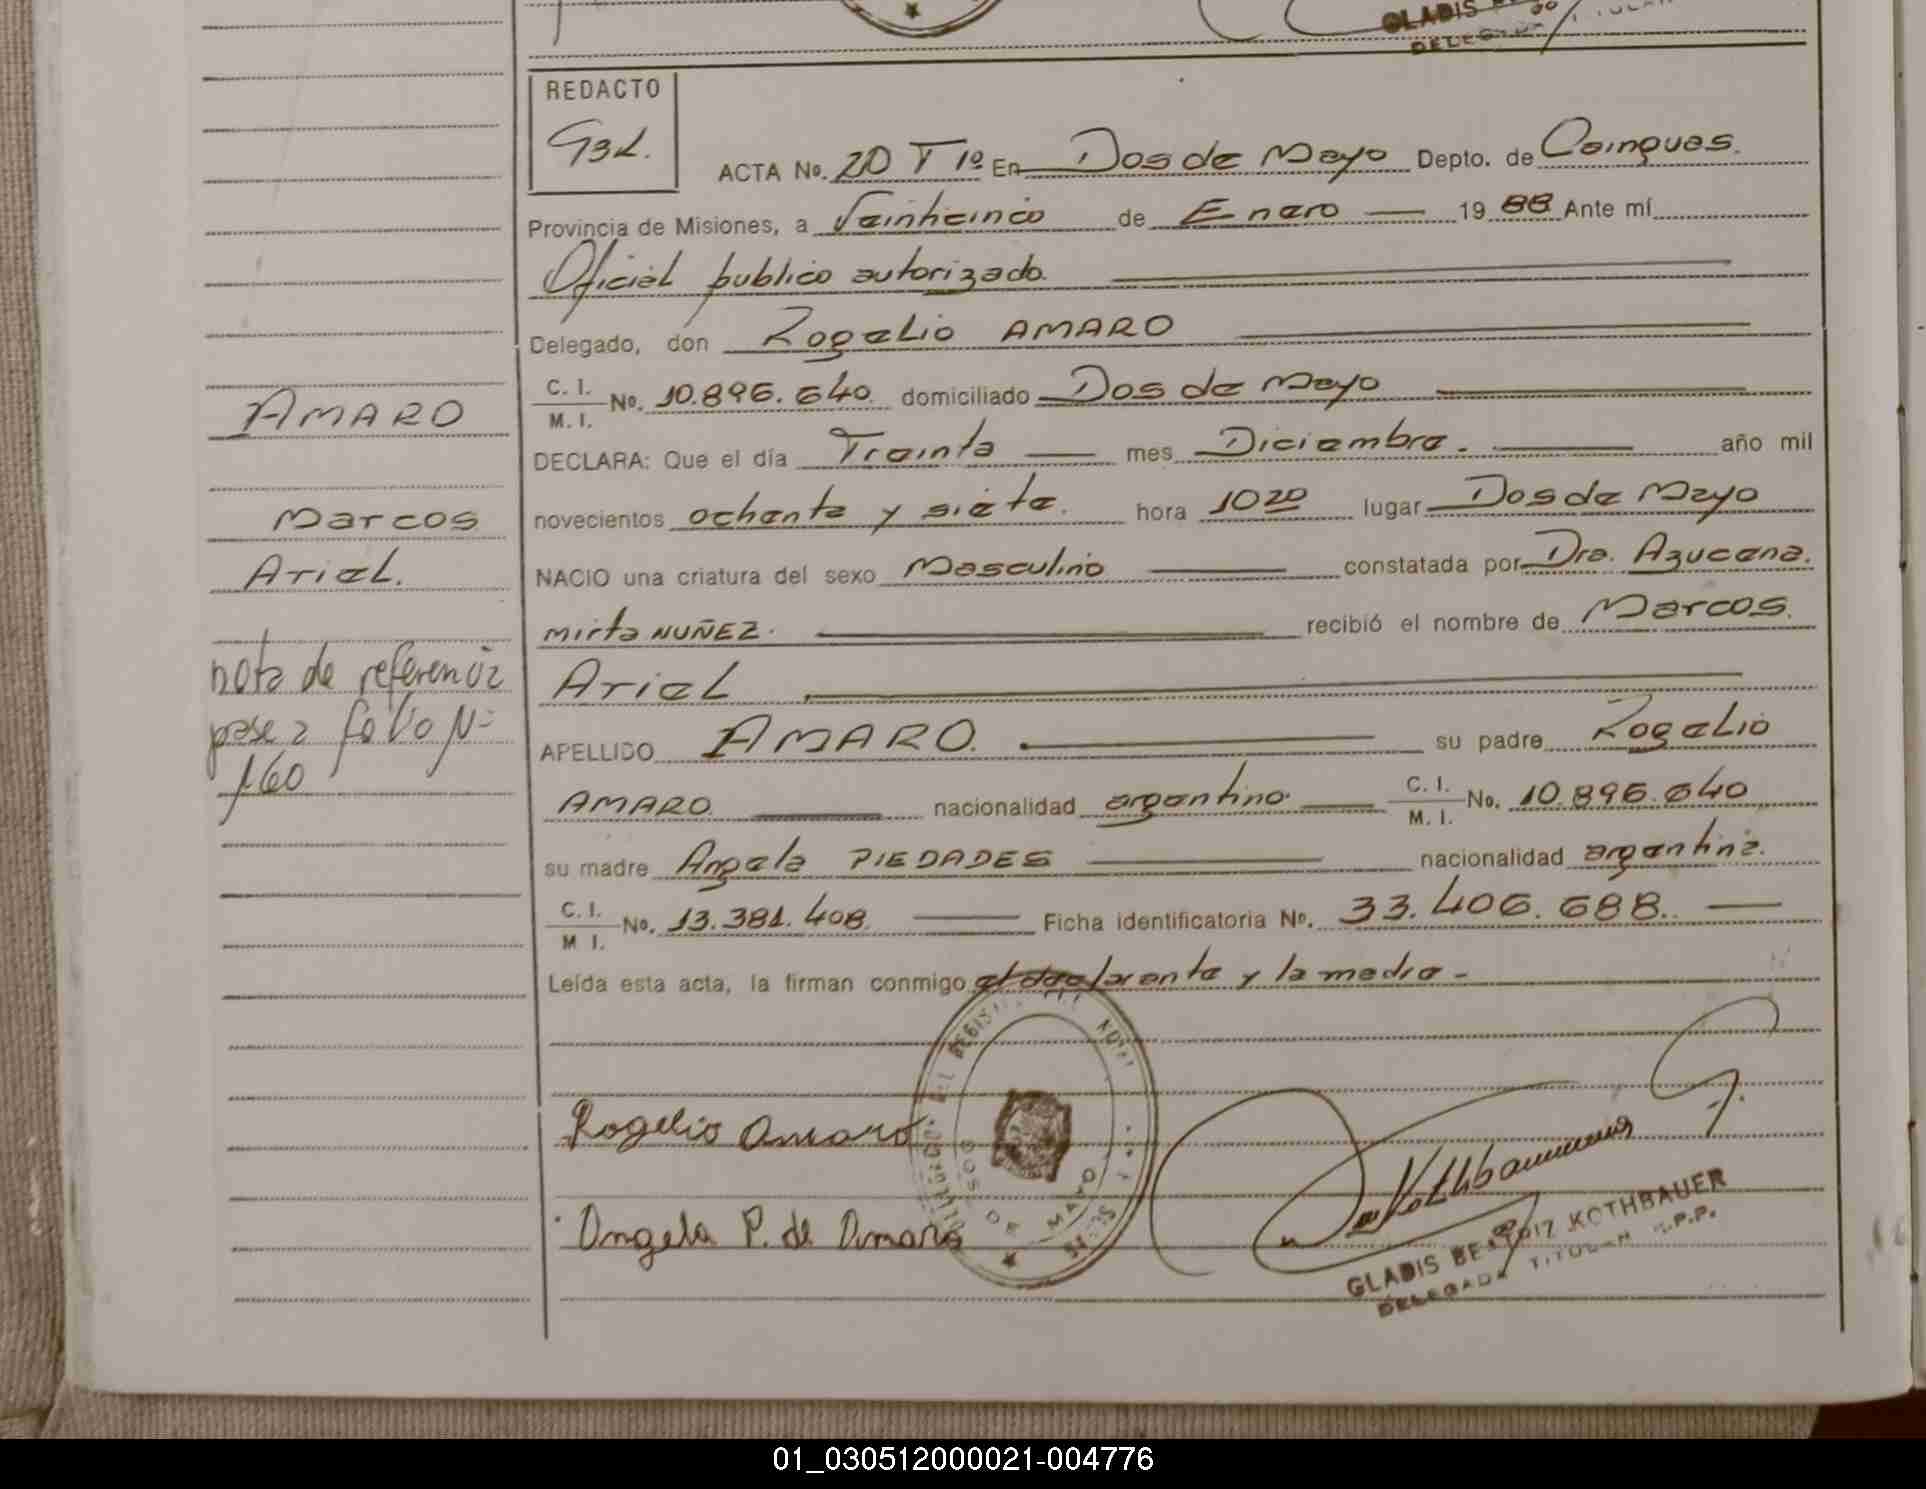 GLADIS
REDACTO
ACTA No. 20 T 1º En Dos de Mayo Depto. de Cainguas.
Provincia de Misiones, a Veinticinco de Enero 19 88 Ante mí
Oficial publico autorizado.
Delegado, don Rogelio AMARO
C. I.
M. I.
No. 10.896.640. domiciliado Dos de Mayo
AMARO
DECLARA: Que el día Treinta mes Diciembre. año mil
novecientos ochenta y siete. hora 1020 lugar Dos de Mayo
Marcos
Ariel.
NACIO una criatura del sexo Masculino constatada por Dra. Azucena.
Mirta NUÑEZ. recibió el nombre de Marcos.
nota de referencia
pase a folio Nº
160
Ariel
APELLIDO AMARO. su padre Rogelio
AMARO. nacionalidad argentino C. I.
M. I. No. 10.896.640
su madre Angela PIEDADES nacionalidad argentina.
C. I.
M I. No. 13.381.408. Ficha identificatoria No. 33.406.688.
Leída esta acta, la firman conmigo el declarante y la madre -
Rogelio Amaro
Angela P. de Amaro
DOS DE MAYO
Kothbauer
GLADIS BEATRIZ KOTHBAUER
DELEGADA TITULAR R.P.P.
01_030512000021-004776